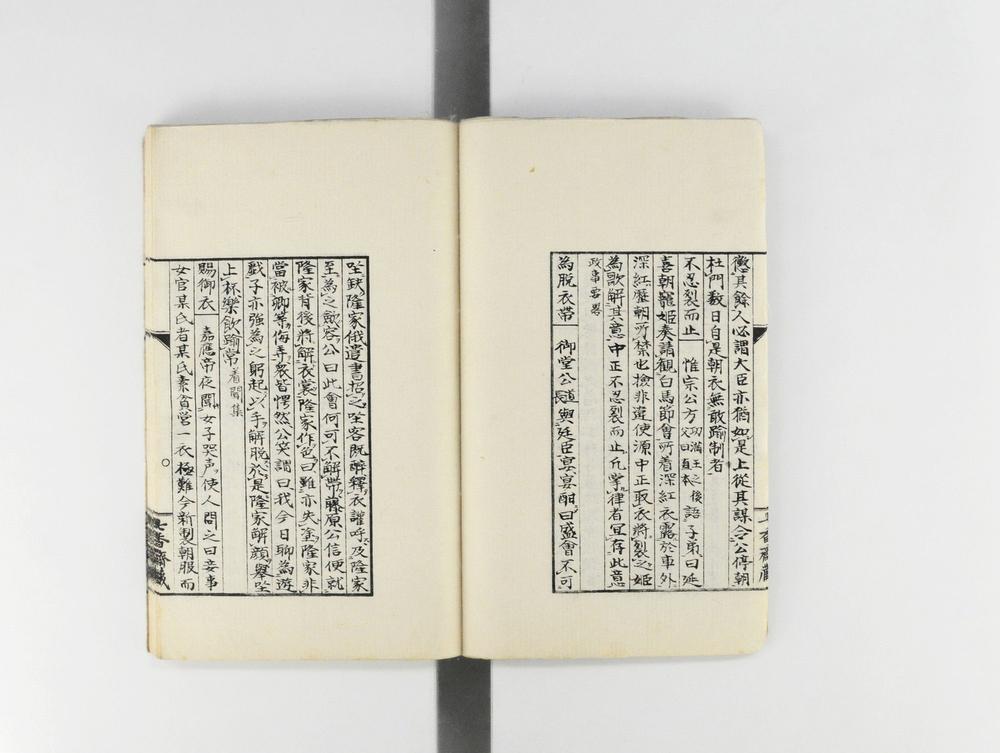 懲其餘人必謂大臣亦猶如是上從其謀令公停朝
杜門数日自是朝衣無敢踰制者
不忍裂而止　惟宗公方
之後語子弟曰延
喜朝寵姬奏請観白馬節會所着深紅衣露於車外
深紅歴朝所禁也撿非違使源中正取衣將裂之姬
為歌解其意中正不忍裂而止凡掌律者宜存此意
政事要畧
為脱衣帯　御堂公道長與廷臣宴宴酣曰盛會不可
坐缺隆家俄遣書招之坐客既酔釋衣讙呼及隆家
至為之歛容公曰此會何可不解帯藤原公信便就
隆家背後將解衣裳隆家作色曰雖亦失塗隆家非
當被卿等侮弄衆皆愕然公笑謂曰我今日聊為遊
戲子亦強為之躬起以手解脱於是隆家解顔舉坐
上杯樂飲踰常着聞集
賜御衣　嘉應帝夜聞女子哭声使人問之曰妾事
女官某氏者某氏素貧営一衣極難今新製朝服而